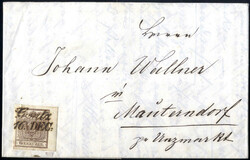 Herrn
Johann Wallner
in
Mauterndorf
pr Unzmarkt
10. DEC.